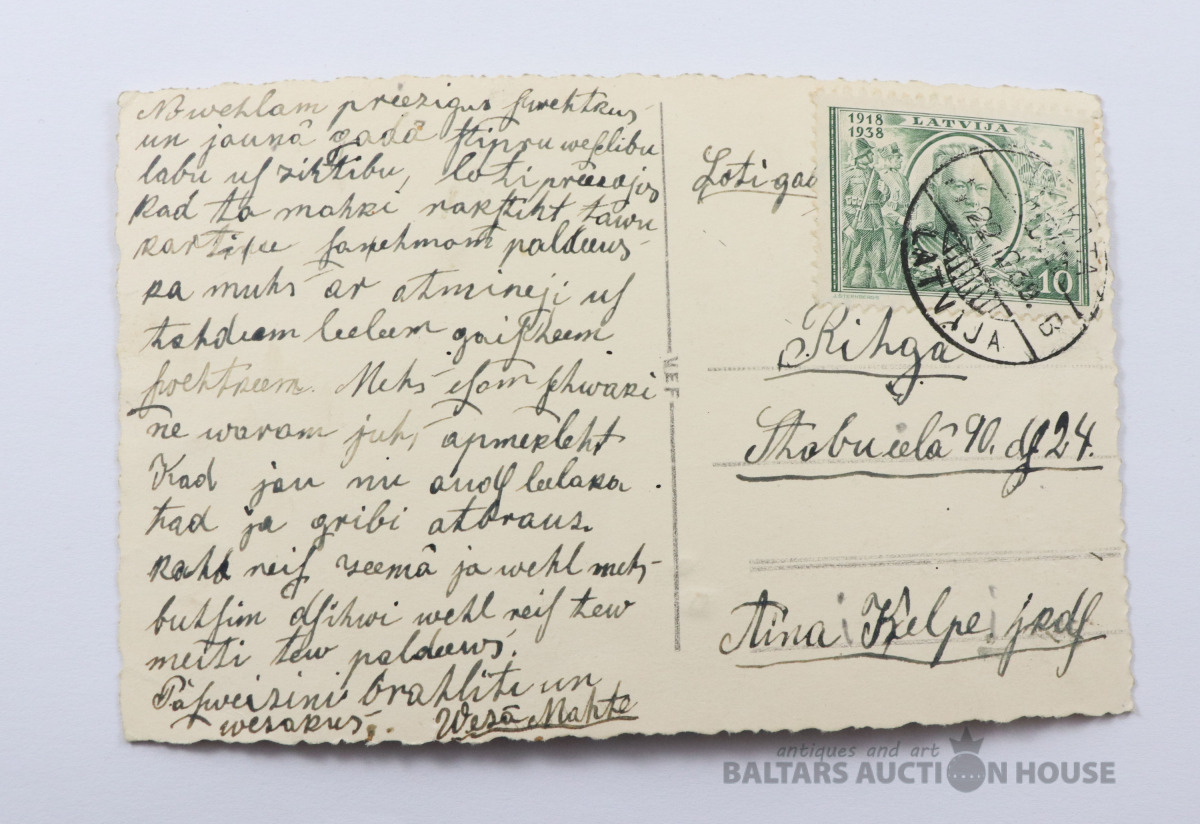 Nowehlam preezigus swehtkus
un jaunā gadā stipru weselibu
labu us sikstibu, loti preezajos
kad ta mahki rakstiht tawu
kartiņu saņehmam paldeews
ka muhs ar atmineji us
tahdeem leeleem gaischeem
swehtkeem. Mehs esam schwaki
ne waram juhs apmekleht
Kad jau nu auds leelaka
tad ja gribi atbrauz.
kahd reis zeemā ja wehl mehs
buhsim dsihwi wehl reis tew
meiti tew paldeews.
Pasweizini brahliti un
wezakus. Wezā Mahte
Loti god
1918
1938
LATVIJA
10
LATVIJA
Rihgā
Stabu eelā 90. ds 24.
Aina Ķelpe jkdſ
VEF
antiques and art
BALTARS AUCTION HOUSE